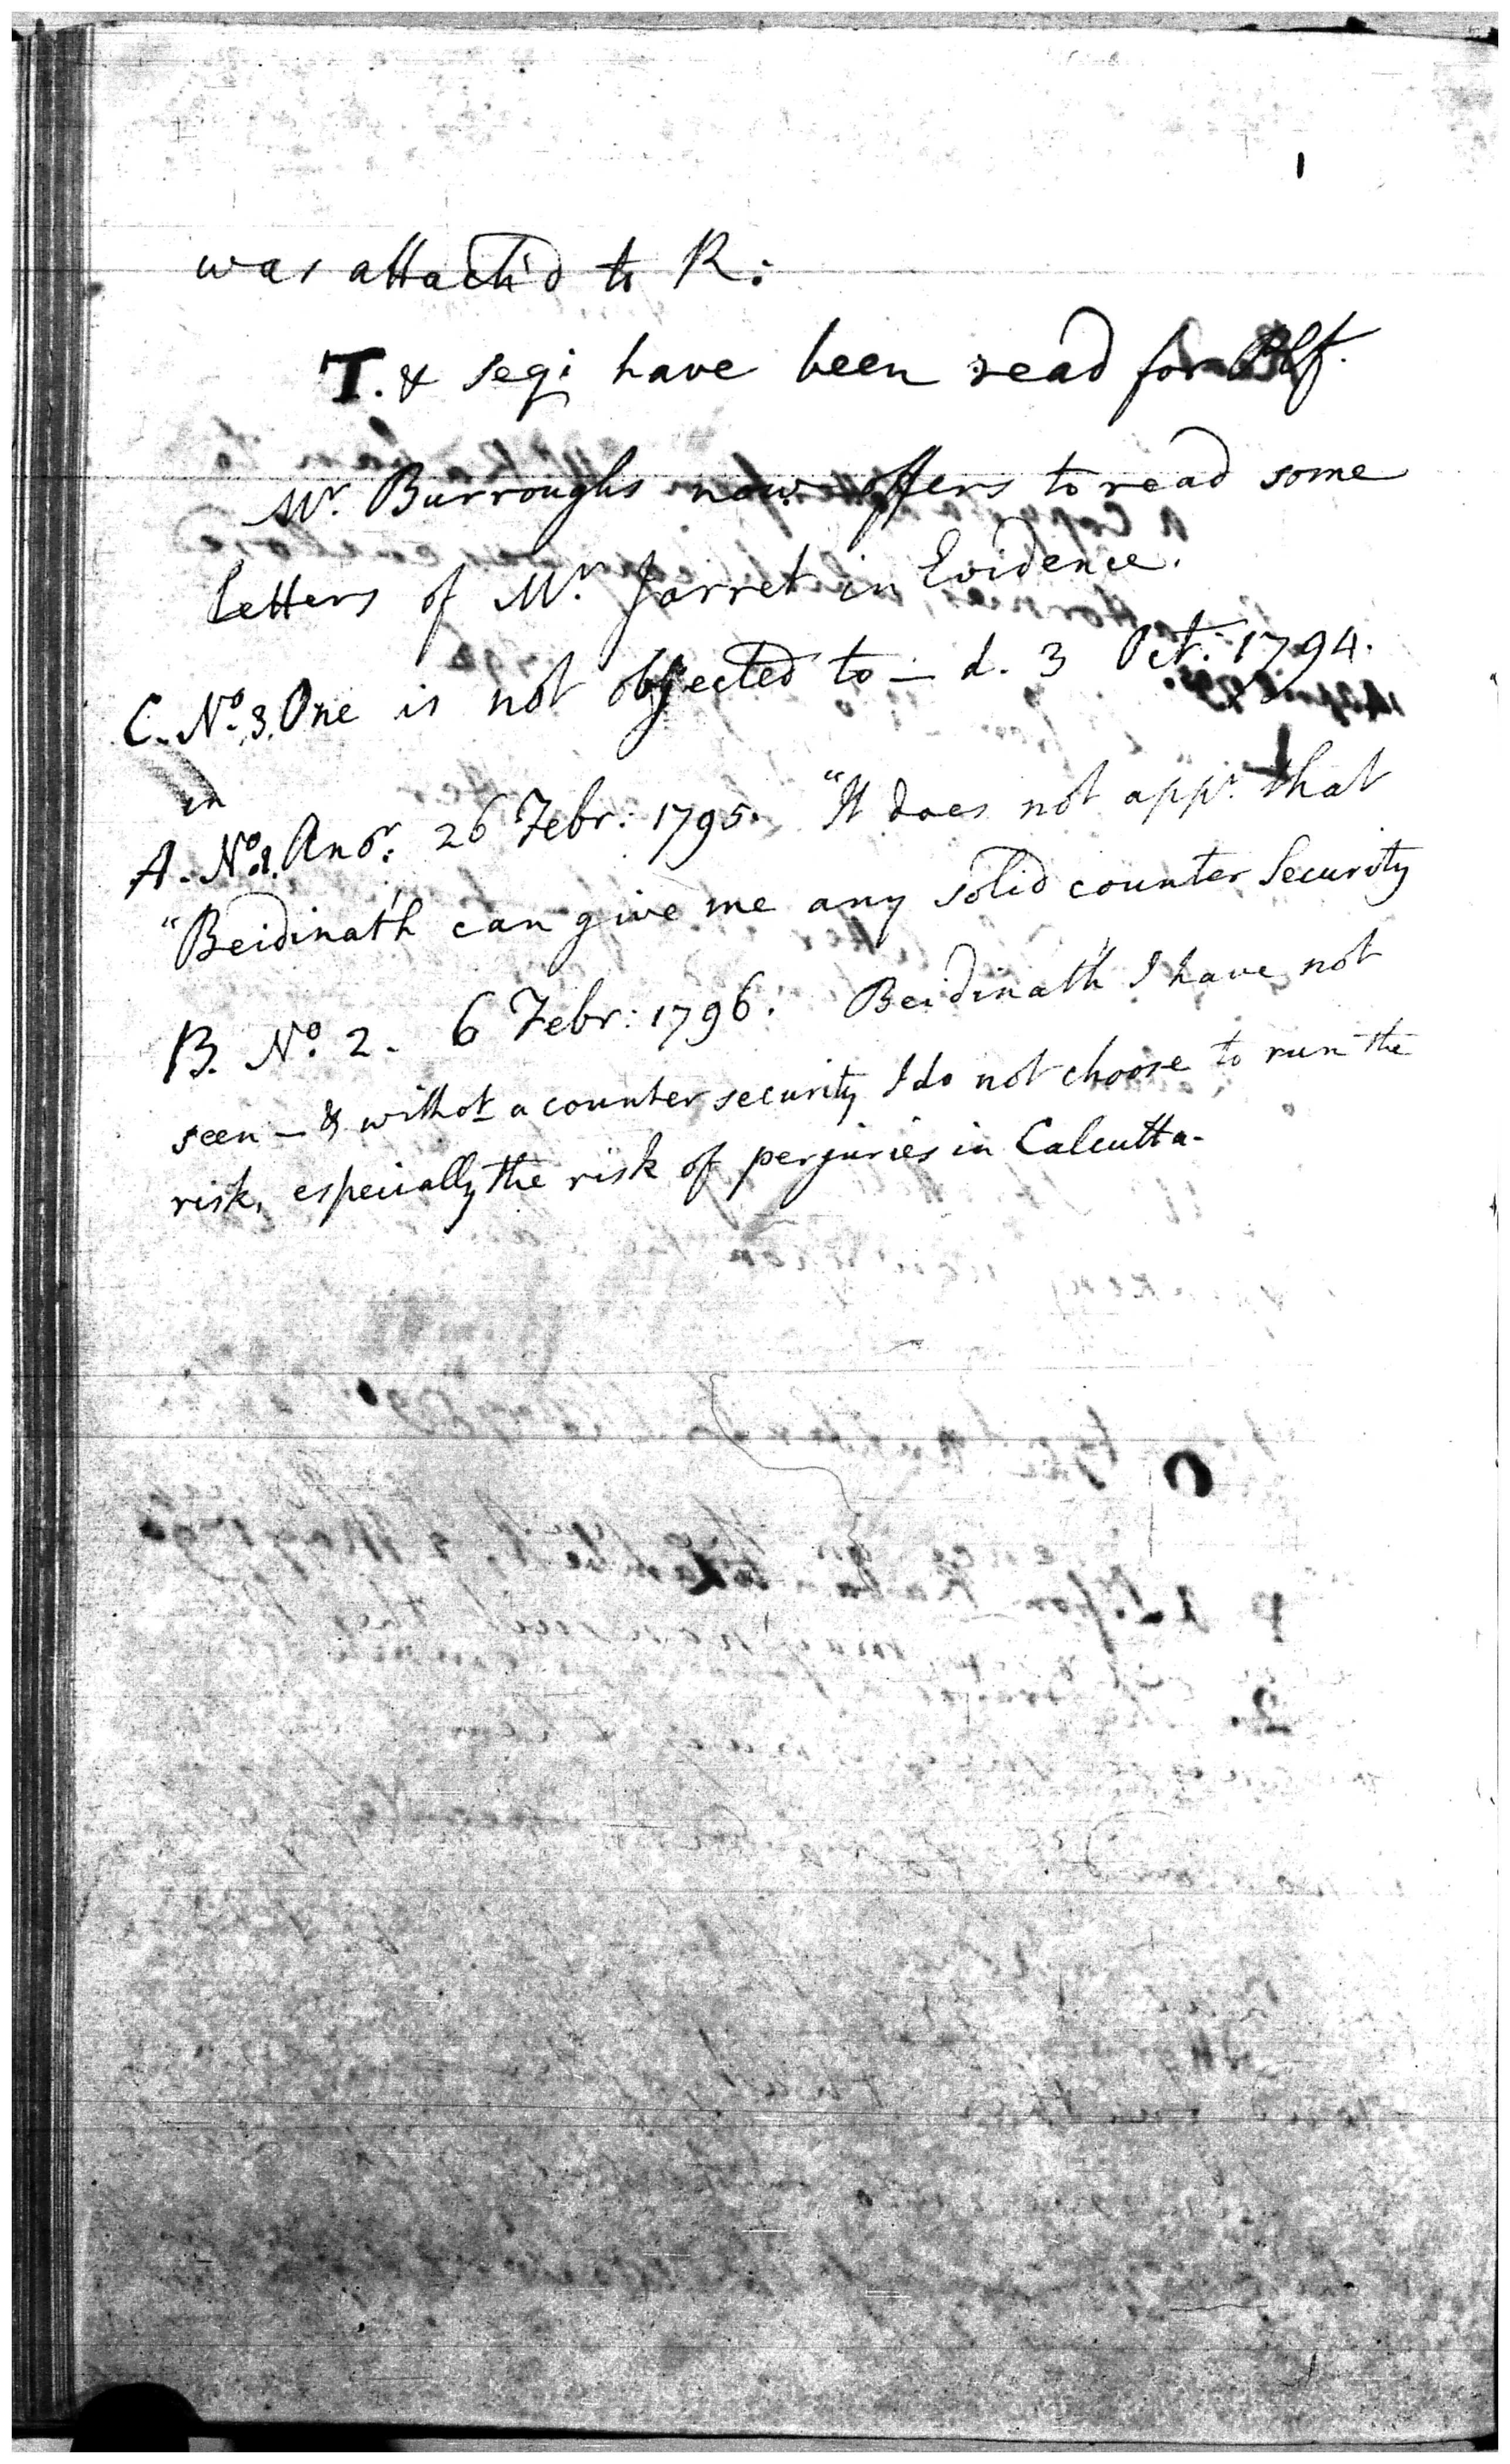 1
was attach'd to R:
T. & seqi have been read for Plf.
Mr. Burroughs now offers to read some
letters of Mr. Jarret in Evidence.
C. No. 3. One is not objected to — d. 3 Oct: 1794.
in
A. No. 1. Anor: 26 Febr: 1795. "It does not appr. that
"Beidinath can give me any solid counter Security
B. No. 2. 6 Febr: 1796. Beidinath I have not
seen — & withot a counter security I do not choose to run the
risk, especially the risk of perjuries in Calcutta.